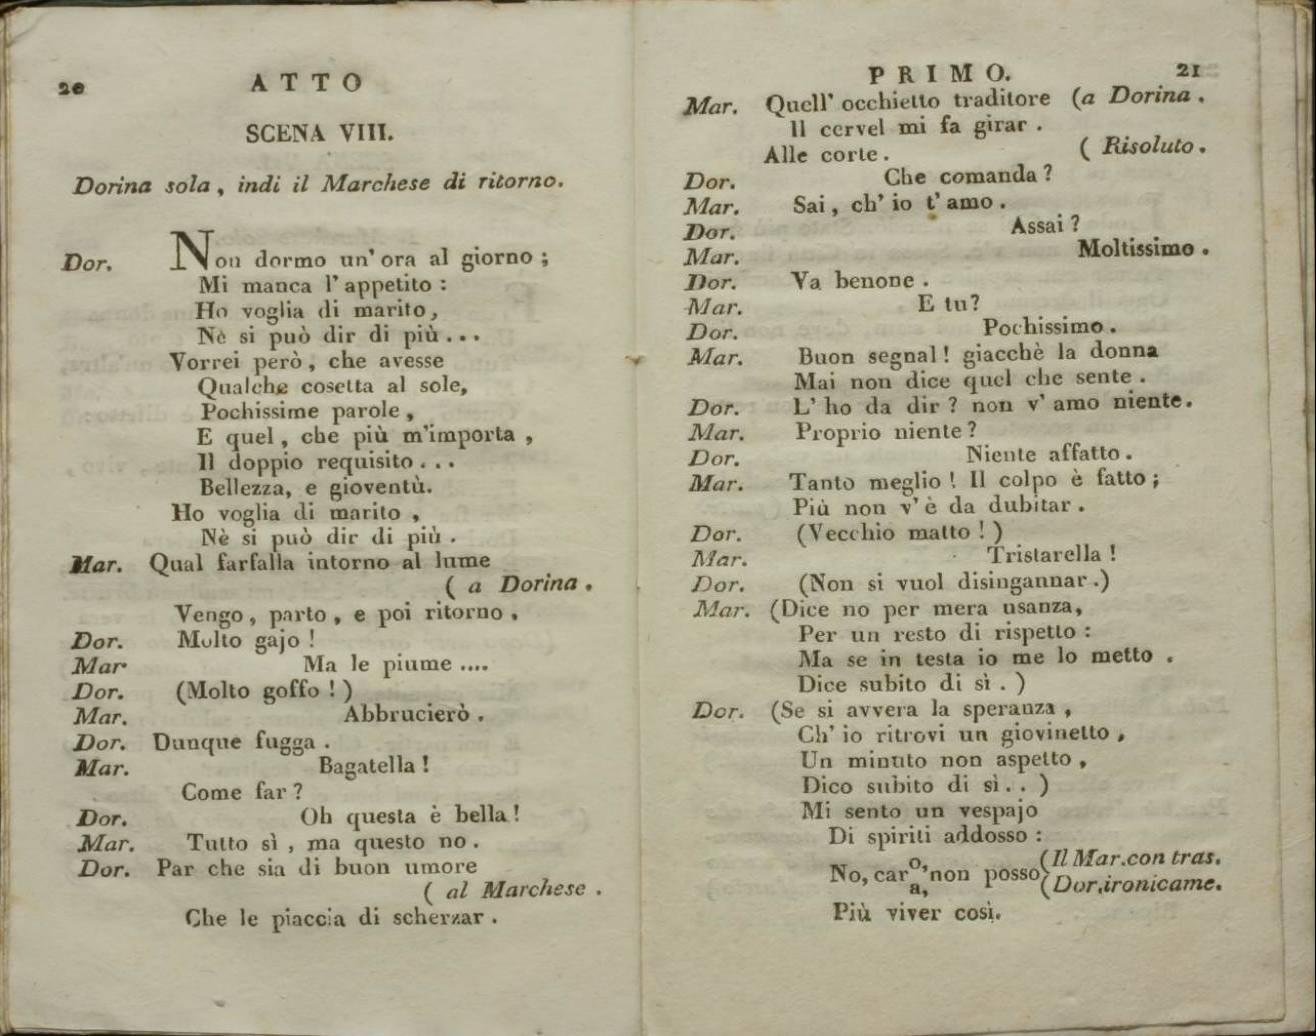 20 ATTO
SCENA VIII.
Dorina sola, indi il Marchese di ritorno.
Dor. Non dormo un' ora al giorno;
Mi manca l' appetito:
Ho voglia di marito,
Nè si può dir di più...
Vorrei però, che avesse
Qualche cosetta al sole,
Pochissime parole,
E quel, che più m'importa,
Il doppio requisito...
Bellezza, e gioventù.
Ho voglia di marito,
Nè si può dir di più.
Mar. Qual farfalla intorno al lume
( a Dorina.
Vengo, parto, e poi ritorno.
Dor. Molto gajo!
Mar. Ma le piume ....
Dor. (Molto goffo!)
Mar. Abbrucierò.
Dor. Dunque fugga.
Mar. Bagatella!
Come far?
Dor. Oh questa è bella!
Mar. Tutto sì, ma questo no.
Dor. Par che sia di buon umore
( al Marchese.
Che le piaccia di scherzar.
PRIMO. 21
Mar. Quell' occhietto traditore (a Dorina.
Il cervel mi fa girar.
Alle corte. ( Risoluto.
Dor. Che comanda?
Mar. Sai, ch' io t' amo.
Dor. Assai?
Mar. Moltissimo.
Dor. Va benone.
Mar. E tu?
Dor. Pochissimo.
Mar. Buon segnal! giacchè la donna
Mai non dice quel che sente.
Dor. L' ho da dir? non v' amo niente.
Mar. Proprio niente?
Dor. Niente affatto.
Mar. Tanto meglio! Il colpo è fatto;
Più non v' è da dubitar.
Dor. (Vecchio matto!)
Mar. Tristarella!
Dor. (Non si vuol disingannar.)
Mar. (Dice no per mera usanza,
Per un resto di rispetto:
Ma se in testa io me lo metto.
Dice subito di sì.)
Dor. (Se si avvera la speranza,
Ch' io ritrovi un giovinetto,
Un minuto non aspetto,
Dico subito di sì..)
Mi sento un vespajo
Di spiriti addosso:
No, caro, non posso (Il Mar. con tras.
a, (Dor. ironicame.
Più viver così.